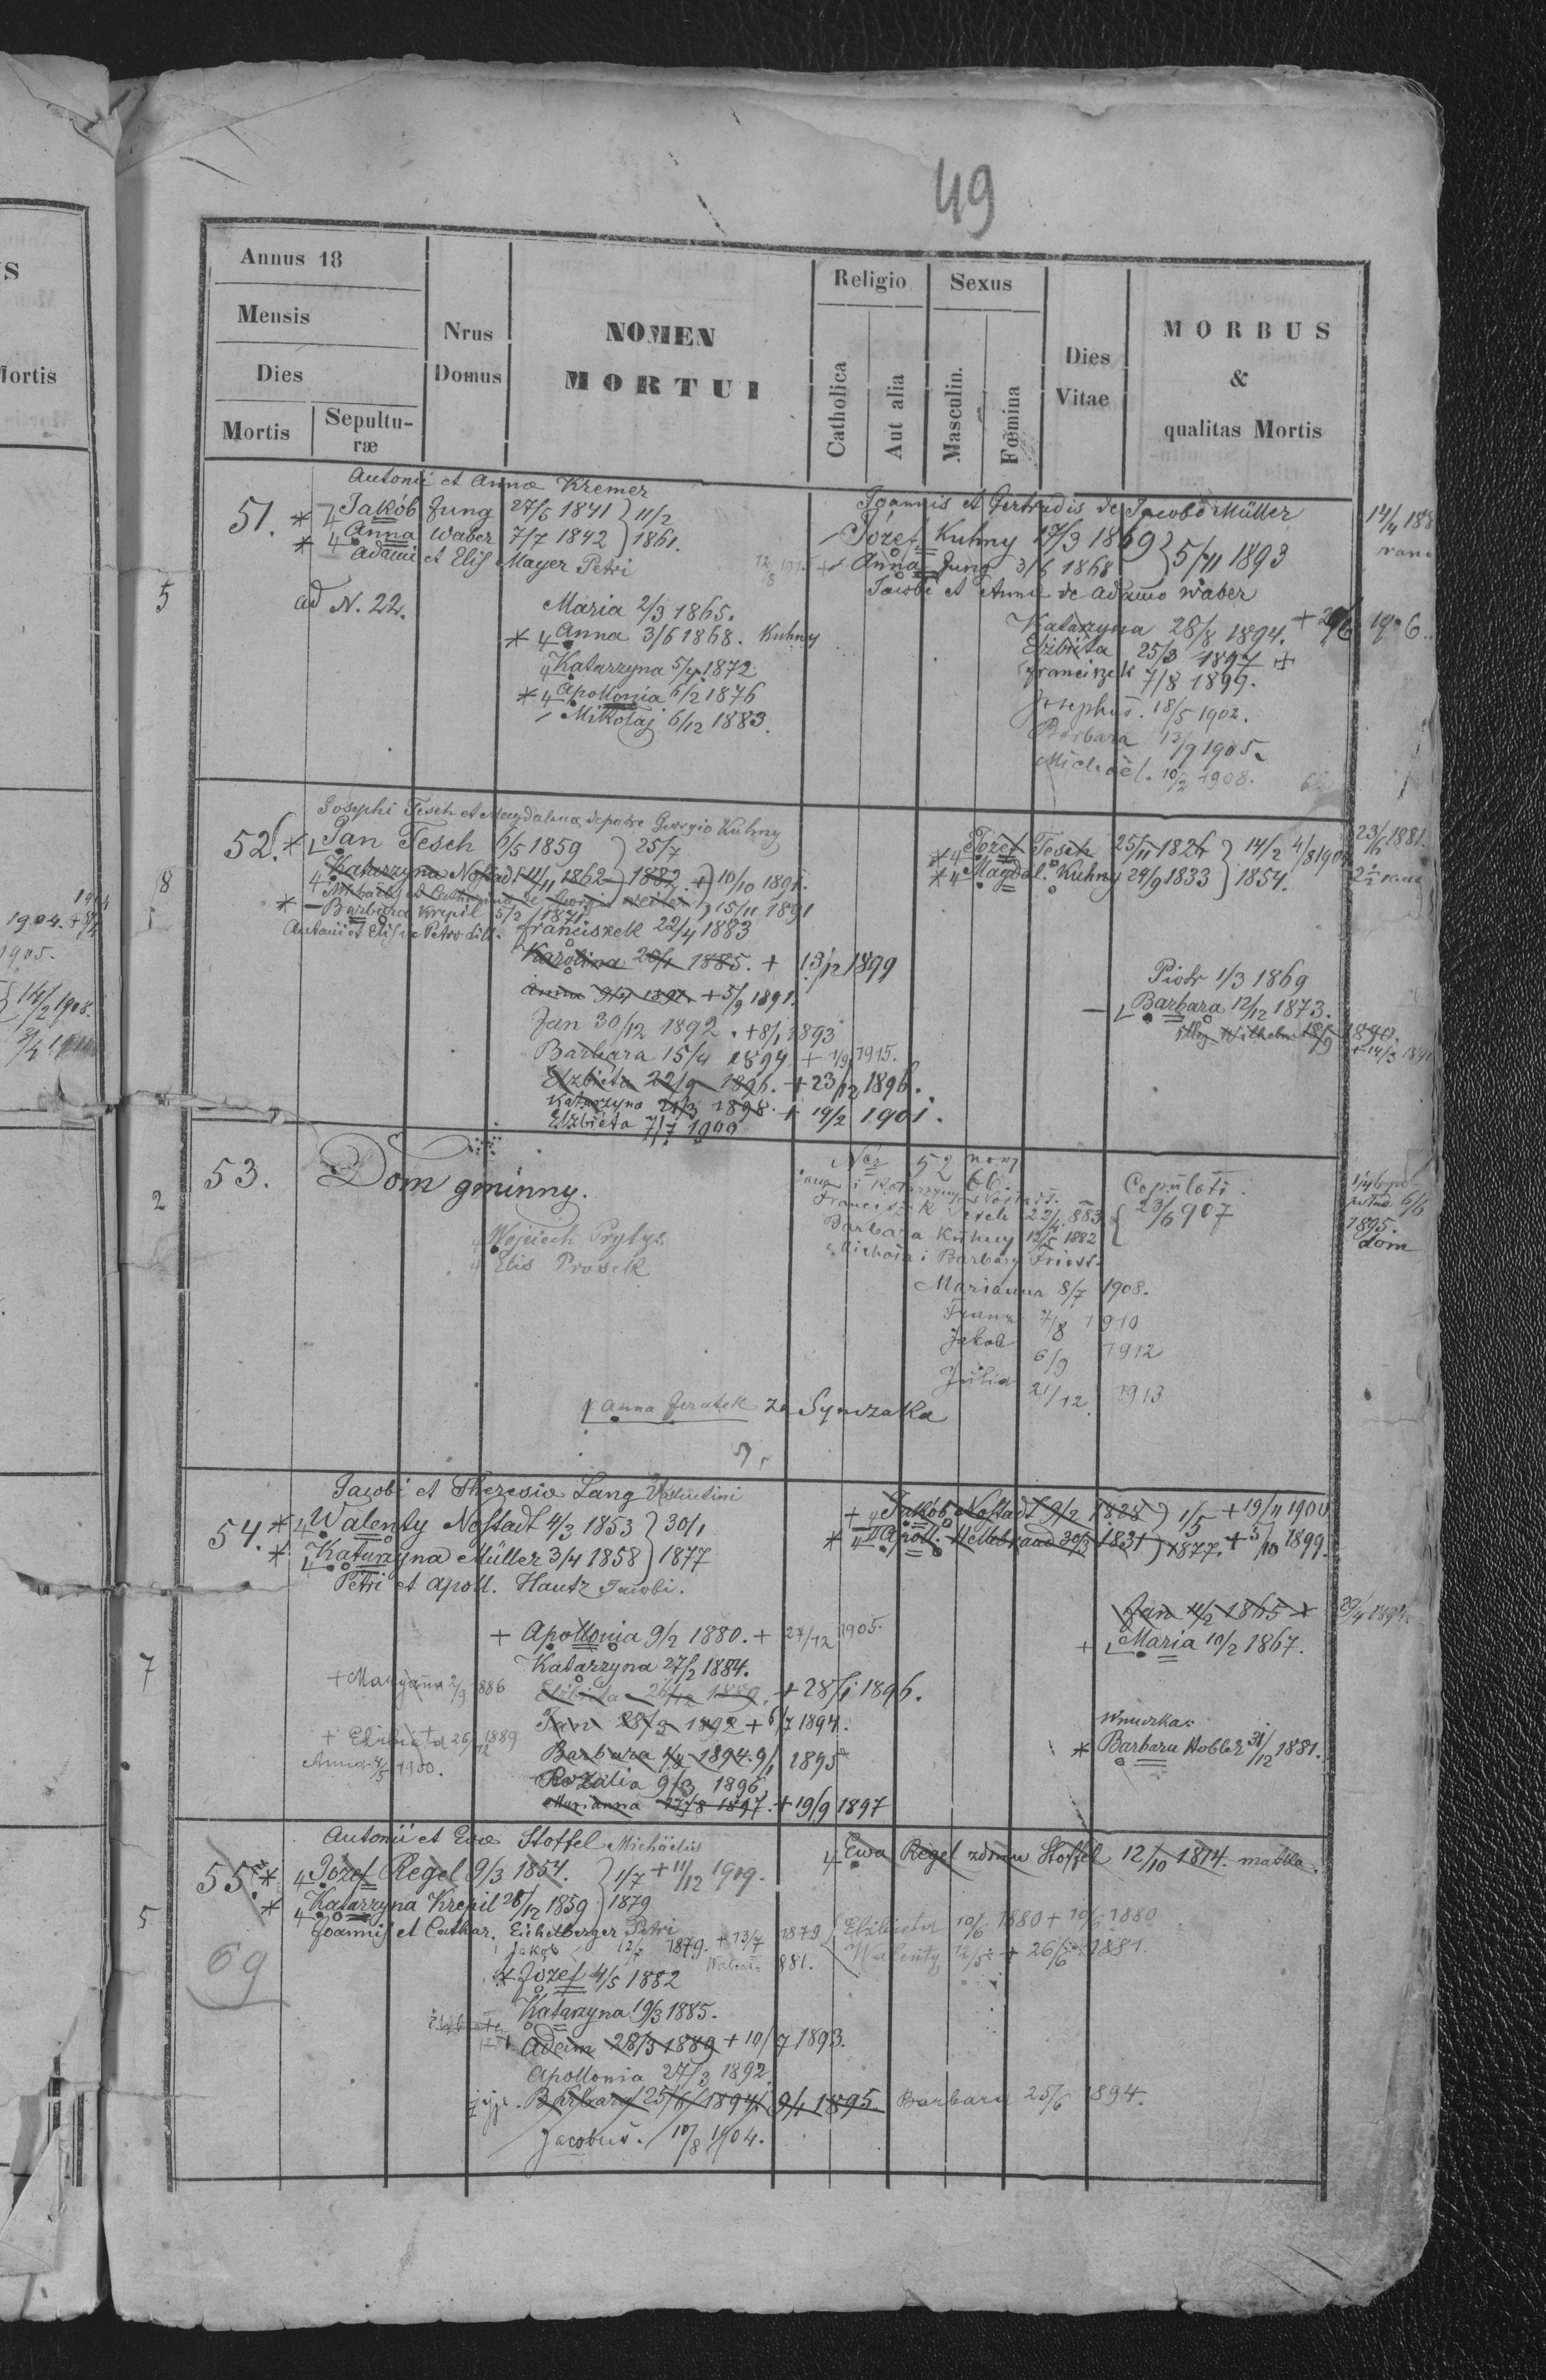 49
Annus 18
Mensis
Dies
Mortis
Sepultu-
ræ
Nrus
Domus
NOMEN
MORTUI
Religio
Catholica
Aut alia
Sexus
Masculin.
Fœmina
Dies
Vitae
MORBUS
&
qualitas Mortis
Antonii et Annæ Kremer
51. * 4 Jakób Jung 27/5 1841 } 11/2
* 4 Anna Waber 7/7 1842 } 1861.
Adami et Elis Mayer Petri
ad N. 22.
Maria 2/3 1865.
* 4 Anna 3/6 1868. Kuhny
4 Katarzyna 5/4 1872
* 4 Apollonia 6/2 1876
Mikołaj 6/12 1883.
Joannis et Gertrudis de Jacobo Müller
Józef Kuhny 17/3 1869 } 5/11 1893
+ Anna Jung 3/6 1868
Jacobi et Annæ de Adamo Waber
Katarzyna 28/8 1894. + 1906.
Elżbieta 25/3 1897 +
Franciszek 7/8 1899.
Josephus. 18/5 1902.
Barbara 13/9 1905.
Michaël. 10/2 1908.
Josephi Tesch et Magdalena de patre Georgio Kuhny
52. * Jan Tesch 6/5 1859 } 25/7
4 Katarzyna Nostadt 11/11 1862 } 1882 + 10/10 1891.
* Barbara Krepil 5/2 1871. } 15/11 1891
Antonii et Elis de Petro
Franciszek 22/4 1883
Karolina 28/1 1885. + 13/12 1899
Anna 9/4 1891. + 5/9 1891.
Jan 30/12 1892. + 8/1 1893
Barbara 15/4 1894 + 1/9 1915.
Elżbieta 22/9 1896. + 23/12 1896.
Katarzyna 21/3 1898. + 19/2 1901.
Elżbieta 7/7 1900
* 4 Józef Tesch 25/11 1826 } 14/2
* 4 Magdal. Kuhny 24/9 1833 } 1854.
23/6 1881.
Piotr 1/3 1869
Barbara 12/12 1873.
Wilhelm 1890.
53. Dom gminny.
4 Wojciech Prytys
4 Elis Prosek
52
66.
Franciszek Tesch 22/4 883
Barbara Kuhny 12/5 1882
Michała i Barbary Friess.
Copulati.
23/6 907
1895.
dom
Marianna 8/7 1908.
Franz 7/8 1910
Jakob 6/9 1912
Julia 21/12 1913
Anna Jeratek za Synczaka
Jacobi et Theresiæ Lang Valentini
54. * 4 Walenty Nostadt 4/3 1853 } 30/1
* Katarzyna Müller 3/4 1858 } 1877
Petri et Apoll. Hautz Jacobi.
+ Apollonia 9/2 1880. + 27/12 1905.
Katarzyna 27/2 1884.
+ Maryanna 2/9 1886
Elżbieta 26/12 1889. + 28/1 1896.
Jan 28/3 1892 + 6/7 1894.
+ Elżbieta 26/12 1889
Barbara 1894. 9/1 1895
Anna 1900.
Rozalia 9/3 1896
Marianna 27/8 1897. + 19/9 1897
+ 4 Jakób Nostadt 9/2 1828 } 1/5 + 19/11 1900
* 4 Apoll. Hellebrand 30/3 1831 } 1877. + 5/10 1899.
Jan 11/2 1865 +
Maria 10/2 1867.
wnuczka:
* Barbara Hobler 31/12 1881.
Antonii et Evæ Stoffel Michäelis
55. * 4 Józef Regel 9/3 1854. } 1/7 + 11/12 1909.
* 4 Katarzyna Krepil 28/12 1859 } 1879
Joannis et Cathar. Eichelberger Petri
Jakób 12/7 1879. + 13/7 1879
69
* Józef 4/5 1882
Katarzyna 19/3 1885.
Adam 28/3 1889 + 10/7 1893.
Apollonia 27/3 1892.
żyje. Barbara 25/6 1894. 9/1 1895
Jacobus. 10/8 1904.
4 Ewa Regel zdomu Stoffel 12/10 1814. matka.
Elżbieta 10/6 1880 + 10/6 1880
Walenty 12/5 + 26/6 1881.
Barbara 25/6 1894.